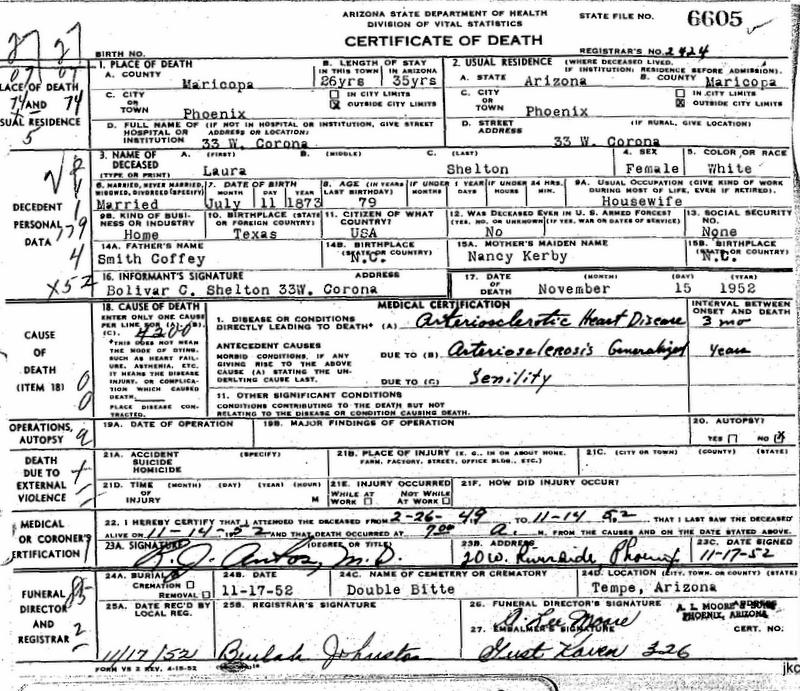 ARIZONA STATE DEPARTMENT OF HEALTH
DIVISION OF VITAL STATISTICS
STATE FILE NO. 6605
CERTIFICATE OF DEATH
BIRTH NO.
REGISTRAR'S NO. 2424
27 27
07 07
PLACE OF DEATH
74 AND 74
USUAL RESIDENCE
5
1. PLACE OF DEATH
A. COUNTY
Maricopa
B. LENGTH OF STAY
IN THIS TOWN IN ARIZONA
26yrs 35yrs
2. USUAL RESIDENCE (WHERE DECEASED LIVED. IF INSTITUTION: RESIDENCE BEFORE ADMISSION).
A. STATE Arizona B. COUNTY Maricopa
C. CITY OR TOWN Phoenix
IN CITY LIMITS
OUTSIDE CITY LIMITS
C. CITY OR TOWN Phoenix
IN CITY LIMITS
OUTSIDE CITY LIMITS
D. FULL NAME OF HOSPITAL OR INSTITUTION (IF NOT IN HOSPITAL OR INSTITUTION, GIVE STREET ADDRESS OR LOCATION)
33 W. Corona
D. STREET ADDRESS (IF RURAL, GIVE LOCATION)
33 W. Corona
DECEDENT PERSONAL DATA
179
4
X52
3. NAME OF DECEASED (TYPE OR PRINT)
A. (FIRST) B. (MIDDLE) C. (LAST)
Laura Shelton
4. SEX
Female
5. COLOR OR RACE
White
6. MARRIED, NEVER MARRIED, WIDOWED, DIVORCED (SPECIFY)
Married
7. DATE OF BIRTH
MONTH DAY YEAR
July 11 1873
8. AGE (IN YEARS LAST BIRTHDAY)
79
IF UNDER 1 YEAR
MONTHS DAYS
IF UNDER 24 HRS.
HOURS MIN.
9A. USUAL OCCUPATION (GIVE KIND OF WORK DURING MOST OF LIFE, EVEN IF RETIRED).
Housewife
9B. KIND OF BUSINESS OR INDUSTRY
Home
10. BIRTHPLACE (STATE OR FOREIGN COUNTRY)
Texas
11. CITIZEN OF WHAT COUNTRY?
USA
12. WAS DECEASED EVER IN U. S. ARMED FORCES?
(YES, NO, OR UNKNOWN) (IF YES, WAR OR DATES OF SERVICE)
No
13. SOCIAL SECURITY NO.
None
14A. FATHER'S NAME
Smith Coffey
14B. BIRTHPLACE (STATE OR COUNTRY)
N.C.
15A. MOTHER'S MAIDEN NAME
Nancy Kerby
15B. BIRTHPLACE (STATE OR COUNTRY)
N.C.
16. INFORMANT'S SIGNATURE ADDRESS
Bolivar C. Shelton 33W. Corona
17. DATE OF DEATH (MONTH) (DAY) (YEAR)
November 15 1952
CAUSE OF DEATH (ITEM 18)
0
0
18. CAUSE OF DEATH
ENTER ONLY ONE CAUSE PER LINE FOR (A), (B), (C).
4200
*THIS DOES NOT MEAN THE MODE OF DYING, SUCH AS HEART FAILURE, ASTHENIA, ETC. IT MEANS THE DISEASE, INJURY, OR COMPLICATION WHICH CAUSED DEATH.
PLACE DISEASE CONTRACTED.
MEDICAL CERTIFICATION
INTERVAL BETWEEN ONSET AND DEATH
1. DISEASE OR CONDITIONS DIRECTLY LEADING TO DEATH* (A) Arteriosclerotic Heart Disease 3 mo
ANTECEDENT CAUSES
MORBID CONDITIONS, IF ANY GIVING RISE TO THE ABOVE CAUSE (A) STATING THE UNDERLYING CAUSE LAST.
DUE TO (B) Arteriosclerosis Generalized years
DUE TO (C) Senility
11. OTHER SIGNIFICANT CONDITIONS
CONDITIONS CONTRIBUTING TO THE DEATH BUT NOT RELATING TO THE DISEASE OR CONDITION CAUSING DEATH.
OPERATIONS, AUTOPSY
19A. DATE OF OPERATION
19B. MAJOR FINDINGS OF OPERATION
20. AUTOPSY?
YES NO X
DEATH DUE TO EXTERNAL VIOLENCE
21A. ACCIDENT SUICIDE HOMICIDE (SPECIFY)
21B. PLACE OF INJURY (E. G., IN OR ABOUT HOME, FARM, FACTORY, STREET, OFFICE BLDG., ETC.)
21C. (CITY OR TOWN) (COUNTY) (STATE)
21D. TIME OF INJURY (MONTH) (DAY) (YEAR) (HOUR) M
21E. INJURY OCCURRED
WHILE AT WORK NOT WHILE AT WORK
21F. HOW DID INJURY OCCUR?
MEDICAL OR CORONER'S CERTIFICATION
22. I HEREBY CERTIFY THAT I ATTENDED THE DECEASED FROM 2-26-49 TO 11-14 52 THAT I LAST SAW THE DECEASED
ALIVE ON 11-14-52 AND THAT DEATH OCCURRED AT 7:00 a. M. FROM THE CAUSES AND ON THE DATE STATED ABOVE.
23A. SIGNATURE (DEGREE OR TITLE)
M.D.
23B. ADDRESS
20 W. Riverside, Phoenix
23C. DATE SIGNED
11-17-52
FUNERAL DIRECTOR AND REGISTRAR
2
24A. BURIAL
CREMATION
REMOVAL
24B. DATE
11-17-52
24C. NAME OF CEMETERY OR CREMATORY
Double Bitte
24D. LOCATION (CITY, TOWN, OR COUNTY) (STATE)
Tempe, Arizona
25A. DATE REC'D BY LOCAL REG.
11/17/52
25B. REGISTRAR'S SIGNATURE
Beulah Johnston
26. FUNERAL DIRECTOR'S SIGNATURE ADDRESS
Lee Moore
A. L. MOORE & SONS
PHOENIX, ARIZONA
27. EMBALMER'S SIGNATURE CERT. NO.
326
FORM VS 2 REV. 4-15-52
jkc